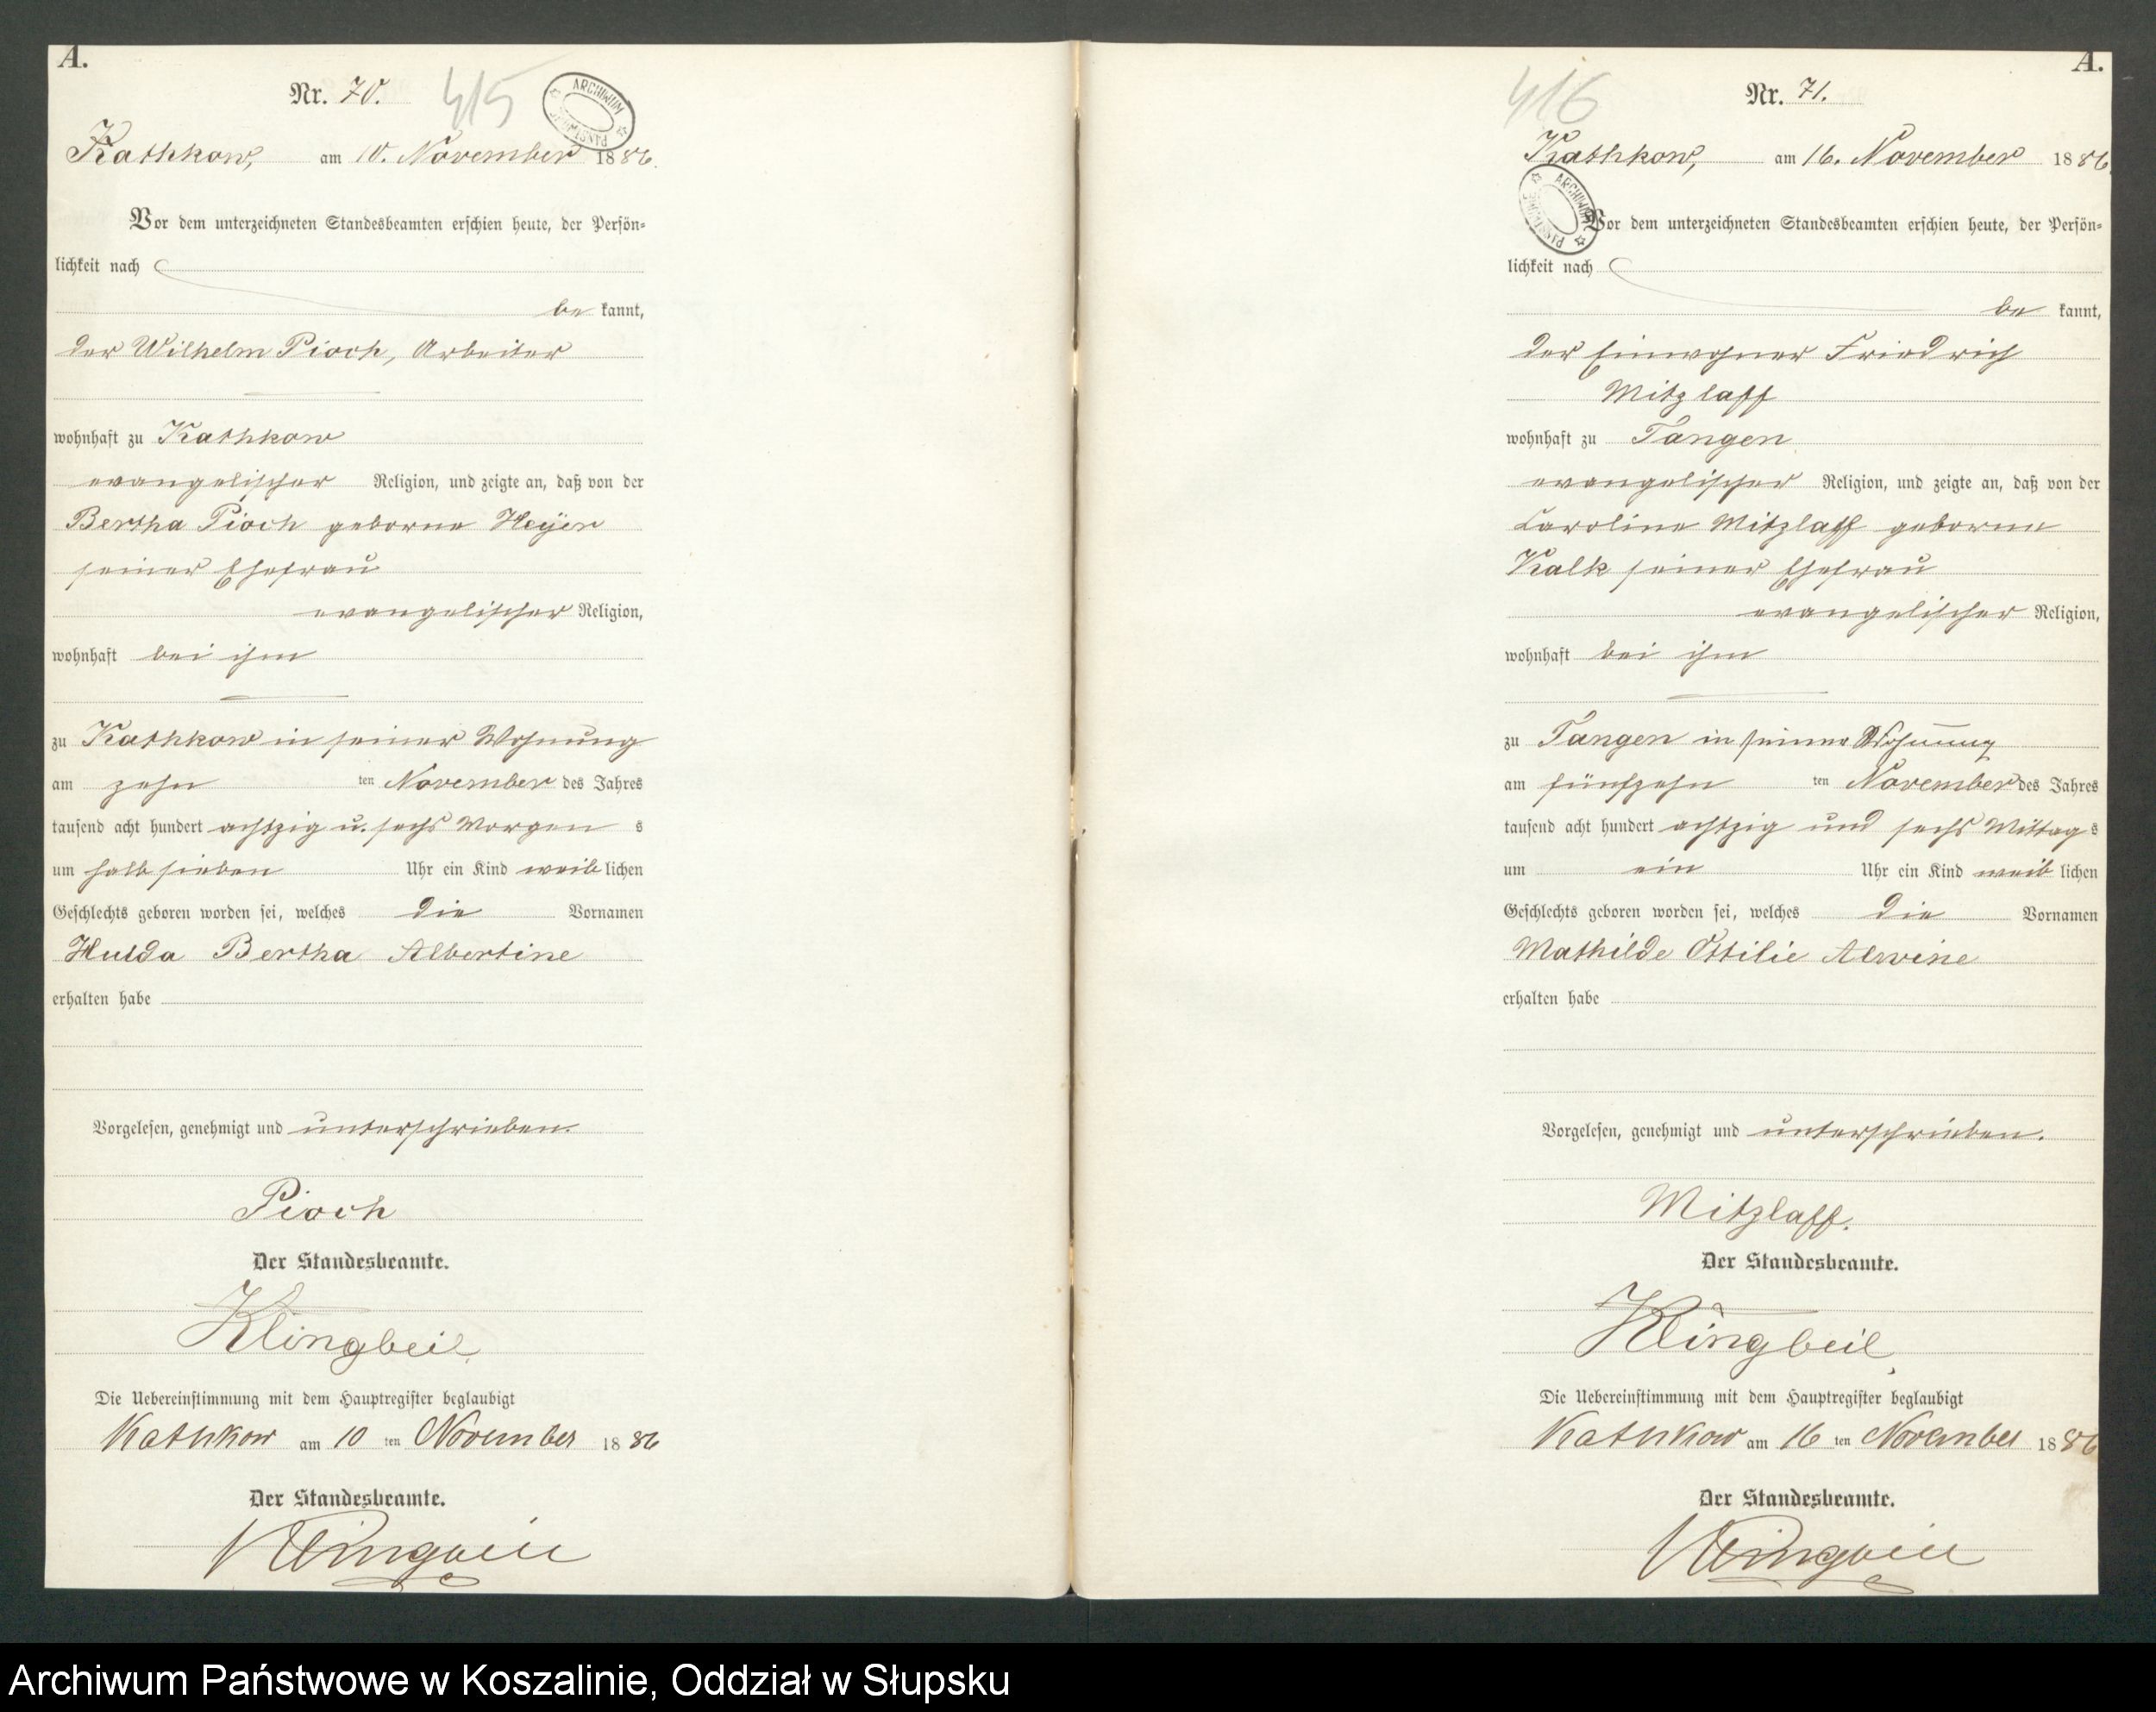 A.
Nr. 70.
415
ARCHIWUM PAŃSTWOWE
Kathkow, am 10. November 1886.
Vor dem unterzeichneten Standesbeamten erschien heute, der Persön-
lichkeit nach
be kannt,
der Wilhelm Pioch, Arbeiter
wohnhaft zu Kathkow
evangelischer Religion, und zeigte an, daß von der
Bertha Pioch geborne Heyer
seiner Ehefrau
evangelischer Religion,
wohnhaft bei ihm
zu Kathkow in seiner Wohnung
am zehn ten November des Jahres
tausend acht hundert achtzig u. sechs Morgen s
um halb sieben Uhr ein Kind weib lichen
Geschlechts geboren worden sei, welches die Vornamen
Hulda Bertha Albertine
erhalten habe
Vorgelesen, genehmigt und unterschrieben.
Pioch
Der Standesbeamte.
Klingbeil
Die Uebereinstimmung mit dem Hauptregister beglaubigt
Kathkow am 10 ten November 1886
Der Standesbeamte.
Klingbeil
A.
Nr. 71.
416
ARCHIWUM PAŃSTWOWE
Kathkow, am 16. November 1886.
Vor dem unterzeichneten Standesbeamten erschien heute, der Persön-
lichkeit nach
be kannt,
der Einwohner Friedrich
Mitzlaff
wohnhaft zu Tangen
evangelischer Religion, und zeigte an, daß von der
Caroline Mitzlaff geborne
Kalk seiner Ehefrau
evangelischer Religion,
wohnhaft bei ihm
zu Tangen in seiner Wohnung
am fünfzehn ten November des Jahres
tausend acht hundert achtzig und sechs Mittag s
um ein Uhr ein Kind weib lichen
Geschlechts geboren worden sei, welches die Vornamen
Mathilde Ottilie Alwine
erhalten habe
Vorgelesen, genehmigt und unterschrieben.
Mitzlaff.
Der Standesbeamte.
Klingbeil
Die Uebereinstimmung mit dem Hauptregister beglaubigt
Kathkow am 16 ten November 1886
Der Standesbeamte.
Klingbeil
Archiwum Państwowe w Koszalinie, Oddział w Słupsku